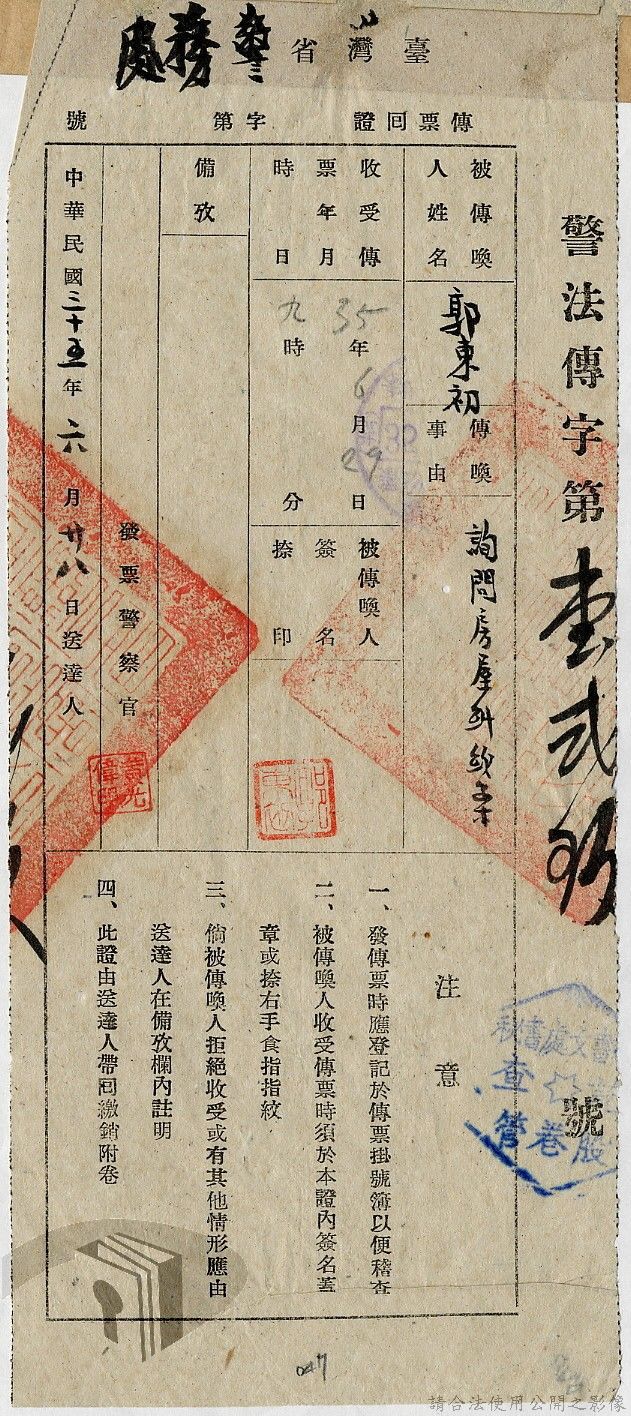 臺灣省警務處
傳票回證　字第　號
警法傳字第壹弍號
被傳喚人姓名
郭東初
傳喚事由
詢問房屋糾紛案
收受傳票年月日時
35年6月29日
九時　分
被傳喚人簽名捺印
備攷
發票警察官
中華民國三十五年六月廿八日送達人
注意
一、發傳票時應登記於傳票掛號簿以便稽查
二、被傳喚人收受傳票時須於本證內簽名蓋
章或捺右手食指指紋
三、倘被傳喚人拒絕收受或有其他情形應由
送達人在備攷欄內註明
四、此證由送達人帶回繳銷附卷
查管
047
請合法使用公開之影像